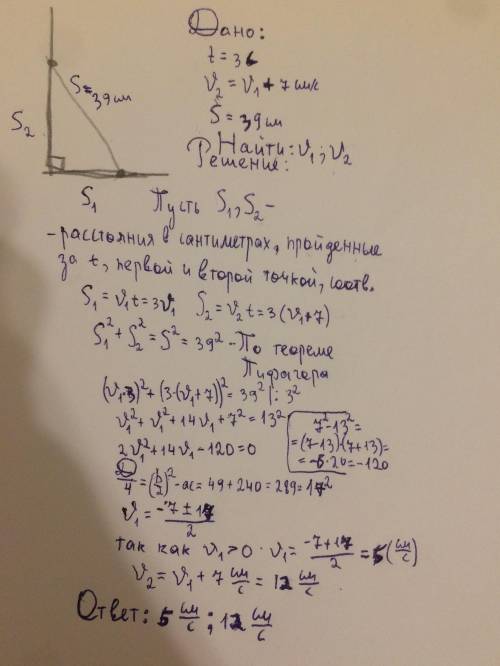 Дано:
t = 3c
V₂ = V₁ + 7 см/с
S = 39 см
Найти: V₁; V₂
Решение:
S = 39 см
S₂
S₁
Пусть S₁, S₂ –
– расстояния в сантиметрах, пройденные
за t, первой и второй точкой, соотв.
S₁ = V₁t = 3V₁ S₂ = V₂t = 3(V₁+7)
S₁² + S₂² = S² = 39² – По теореме
Пифагора
(V₁·3)² + (3·(V₁+7))² = 39² |: 3²
V₁² + V₁² + 14V₁ + 7² = 13²
7² – 13² =
= (7–13)·(7+13) =
= –6·20 = –120
2V₁² + 14V₁ – 120 = 0
D/4 = (b/2)² – ac = 49 + 240 = 289 = 17²
V₁ = (–7 ± 17)/2
так как V₁ > 0 · V₁ = (–7+17)/2 = 5 (см/с)
V₂ = V₁ + 7 см/с = 12 см/с
Ответ: 5 см/с ; 12 см/с